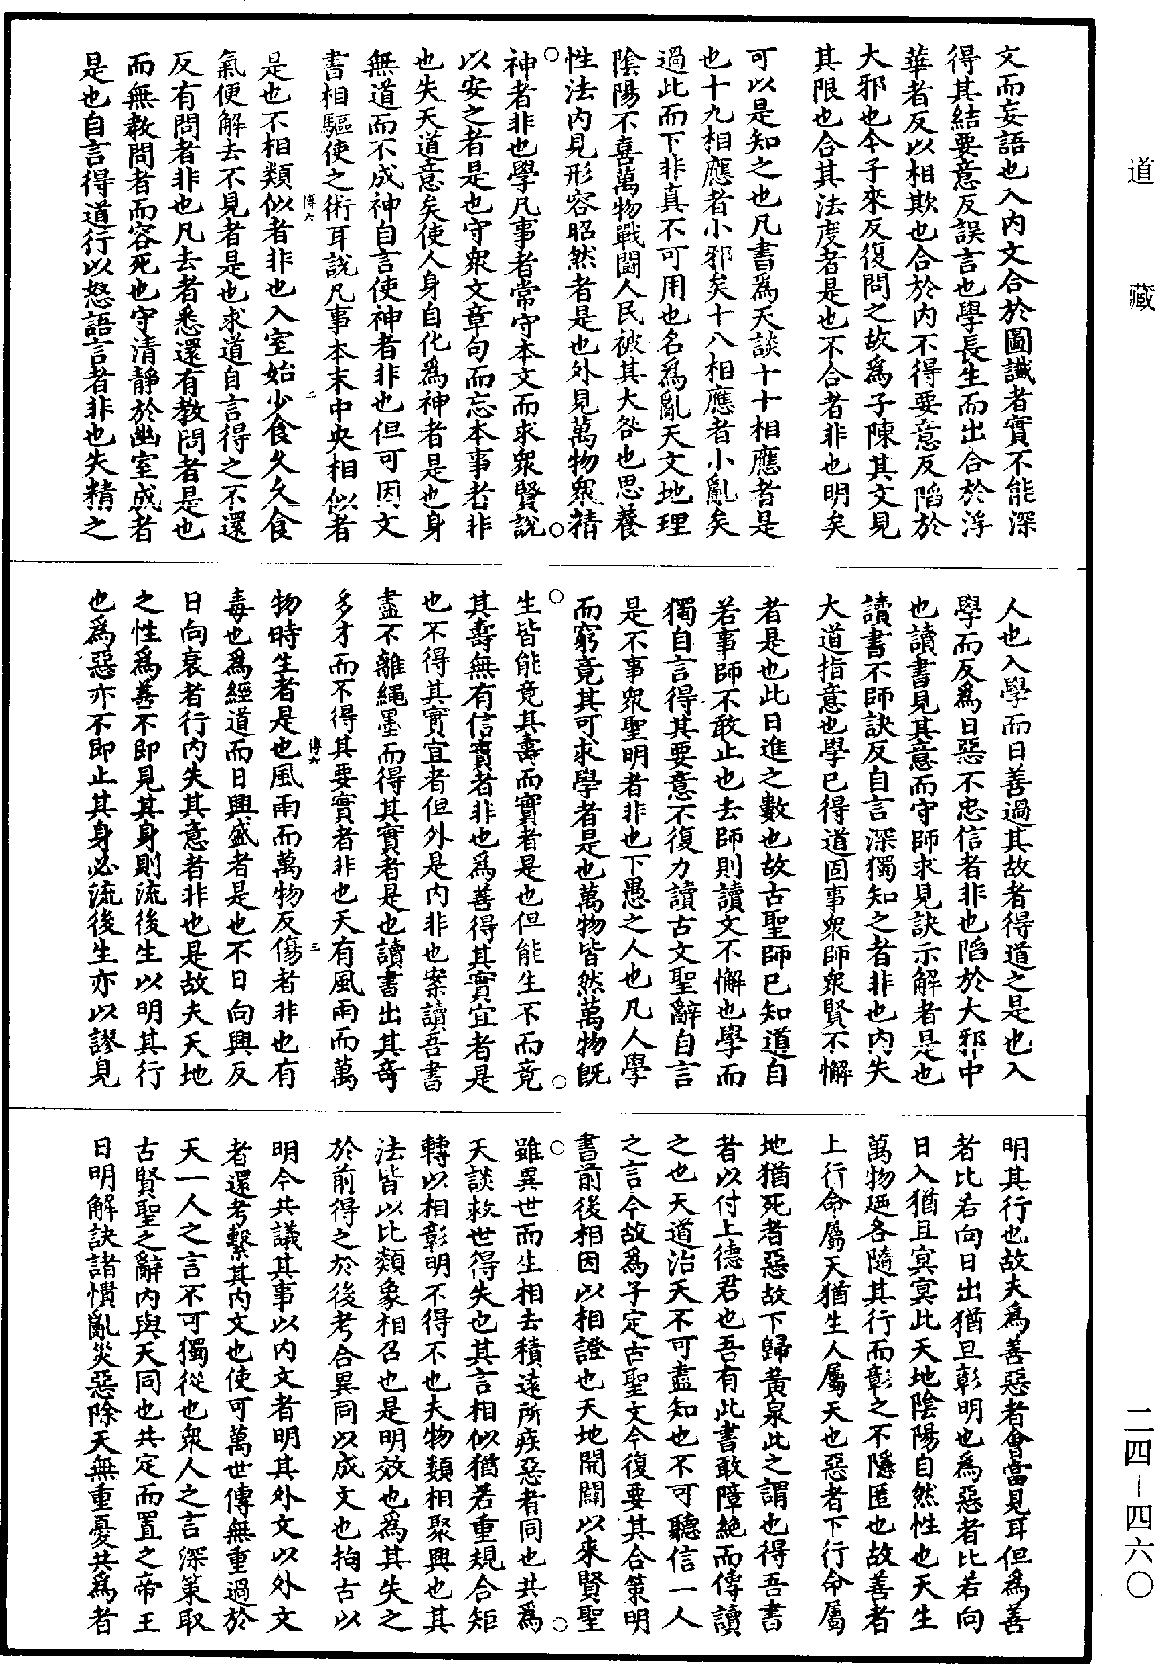 道藏
二四-四六〇
文而妄語也入内文合於圖讖者實不能深
得其結要意反誤言也學長生而出合於浮
華者反以相欺也合於内不得要意反陷於
大邪也今子來反復問之故為子陳其文見
其限也合其法度者是也不合者非也明矣
可以是知之也凡書為天談十十相應者是
也十九相應者小邪矣十八相應者小亂矣
過此而下非真不可用也名為亂天文地理
陰陽不喜萬物戰鬬人民被其大咎也思養
性法内見形容昭然者是也外見萬物衆精
神者非也學凡事者常守本文而求衆賢說
以安之者是也守衆文章句而忘本事者非
也失天道意矣使人身自化為神者是也身
無道而不成神自言使神者非也但可因文
書相驅使之術耳說凡事本末中央相似者
傅六
二
是也不相類似者非也入室始少食久久食
氣便解去不見者是也求道自言得之不還
反有問者非也凡去者悉還有教問者是也
而無教問者而容死也守清靜於幽室成者
是也自言得道行以怒語言者非也失精之
人也入學而日善過其故者得道之是也入
學而反為日惡不忠信者非也陷於大邪中
也讀書見其意而守師求見訣示解者是也
讀書不師訣反自言深獨知之者非也内失
大道指意也學已得道固事衆師衆賢不懈
者是也此日進之數也故古聖師已知道自
若事師不敢止也去師則讀文不懈也學而
獨自言得其要意不復力讀古文聖辭自言
是不事衆聖明者非也下愚之人也凡人學
而窮竟其可求學者是也萬物皆然萬物既
生皆能竟其壽而實者是也但能生不而竟
其壽無有信實者非也為善得其實宜者是
也不得其實宜者但外是内非也案讀吾書
盡不離繩墨而得其實者是也讀書出其奇
多才而不得其要實者非也天有風雨而萬
傅六
三
物時生者是也風雨而萬物反傷者非也有
毒也為經道而日興盛者是也不日向興反
日向衰者行内失其意者非也是故夫天地
之性為善不即見其身則流後生以明其行
也為惡亦不即止其身必流後生亦以謬見
明其行也故夫為善惡者會當見耳但為善
者比若向日出猶旦彰明也為惡者比若向
日入猶且冥冥此天地陰陽自然性也天生
萬物廼各隨其行而彰之不隱匿也故善者
上行命屬天猶生人屬天也惡者下行命屬
地猶死者惡故下歸黃泉此之謂也得吾書
者以付上德君也吾有此書敢障絶而傳讀
之也天道治天不可盡知也不可聽信一人
之言今故為子定古聖文今復要其合策明
書前後相因以相證也天地開闢以來賢聖
雖異世而生相去積遠所疾惡者同也共為
天談救世得失也其言相似猶若重規合矩
轉以相彰明不得不也夫物類相聚興也其
法皆以比類象相召也是明效也為其失之
於前得之於後考合異同以成文也拘古以
明今共議其事以内文者明其外文以外文
者還考繫其内文也使可萬世傳無重過於
天一人之言不可獨從也衆人之言深策取
古賢聖之辭内與天同也共定而置之帝王
日明解訣諸憒亂災惡除天無重憂共為者